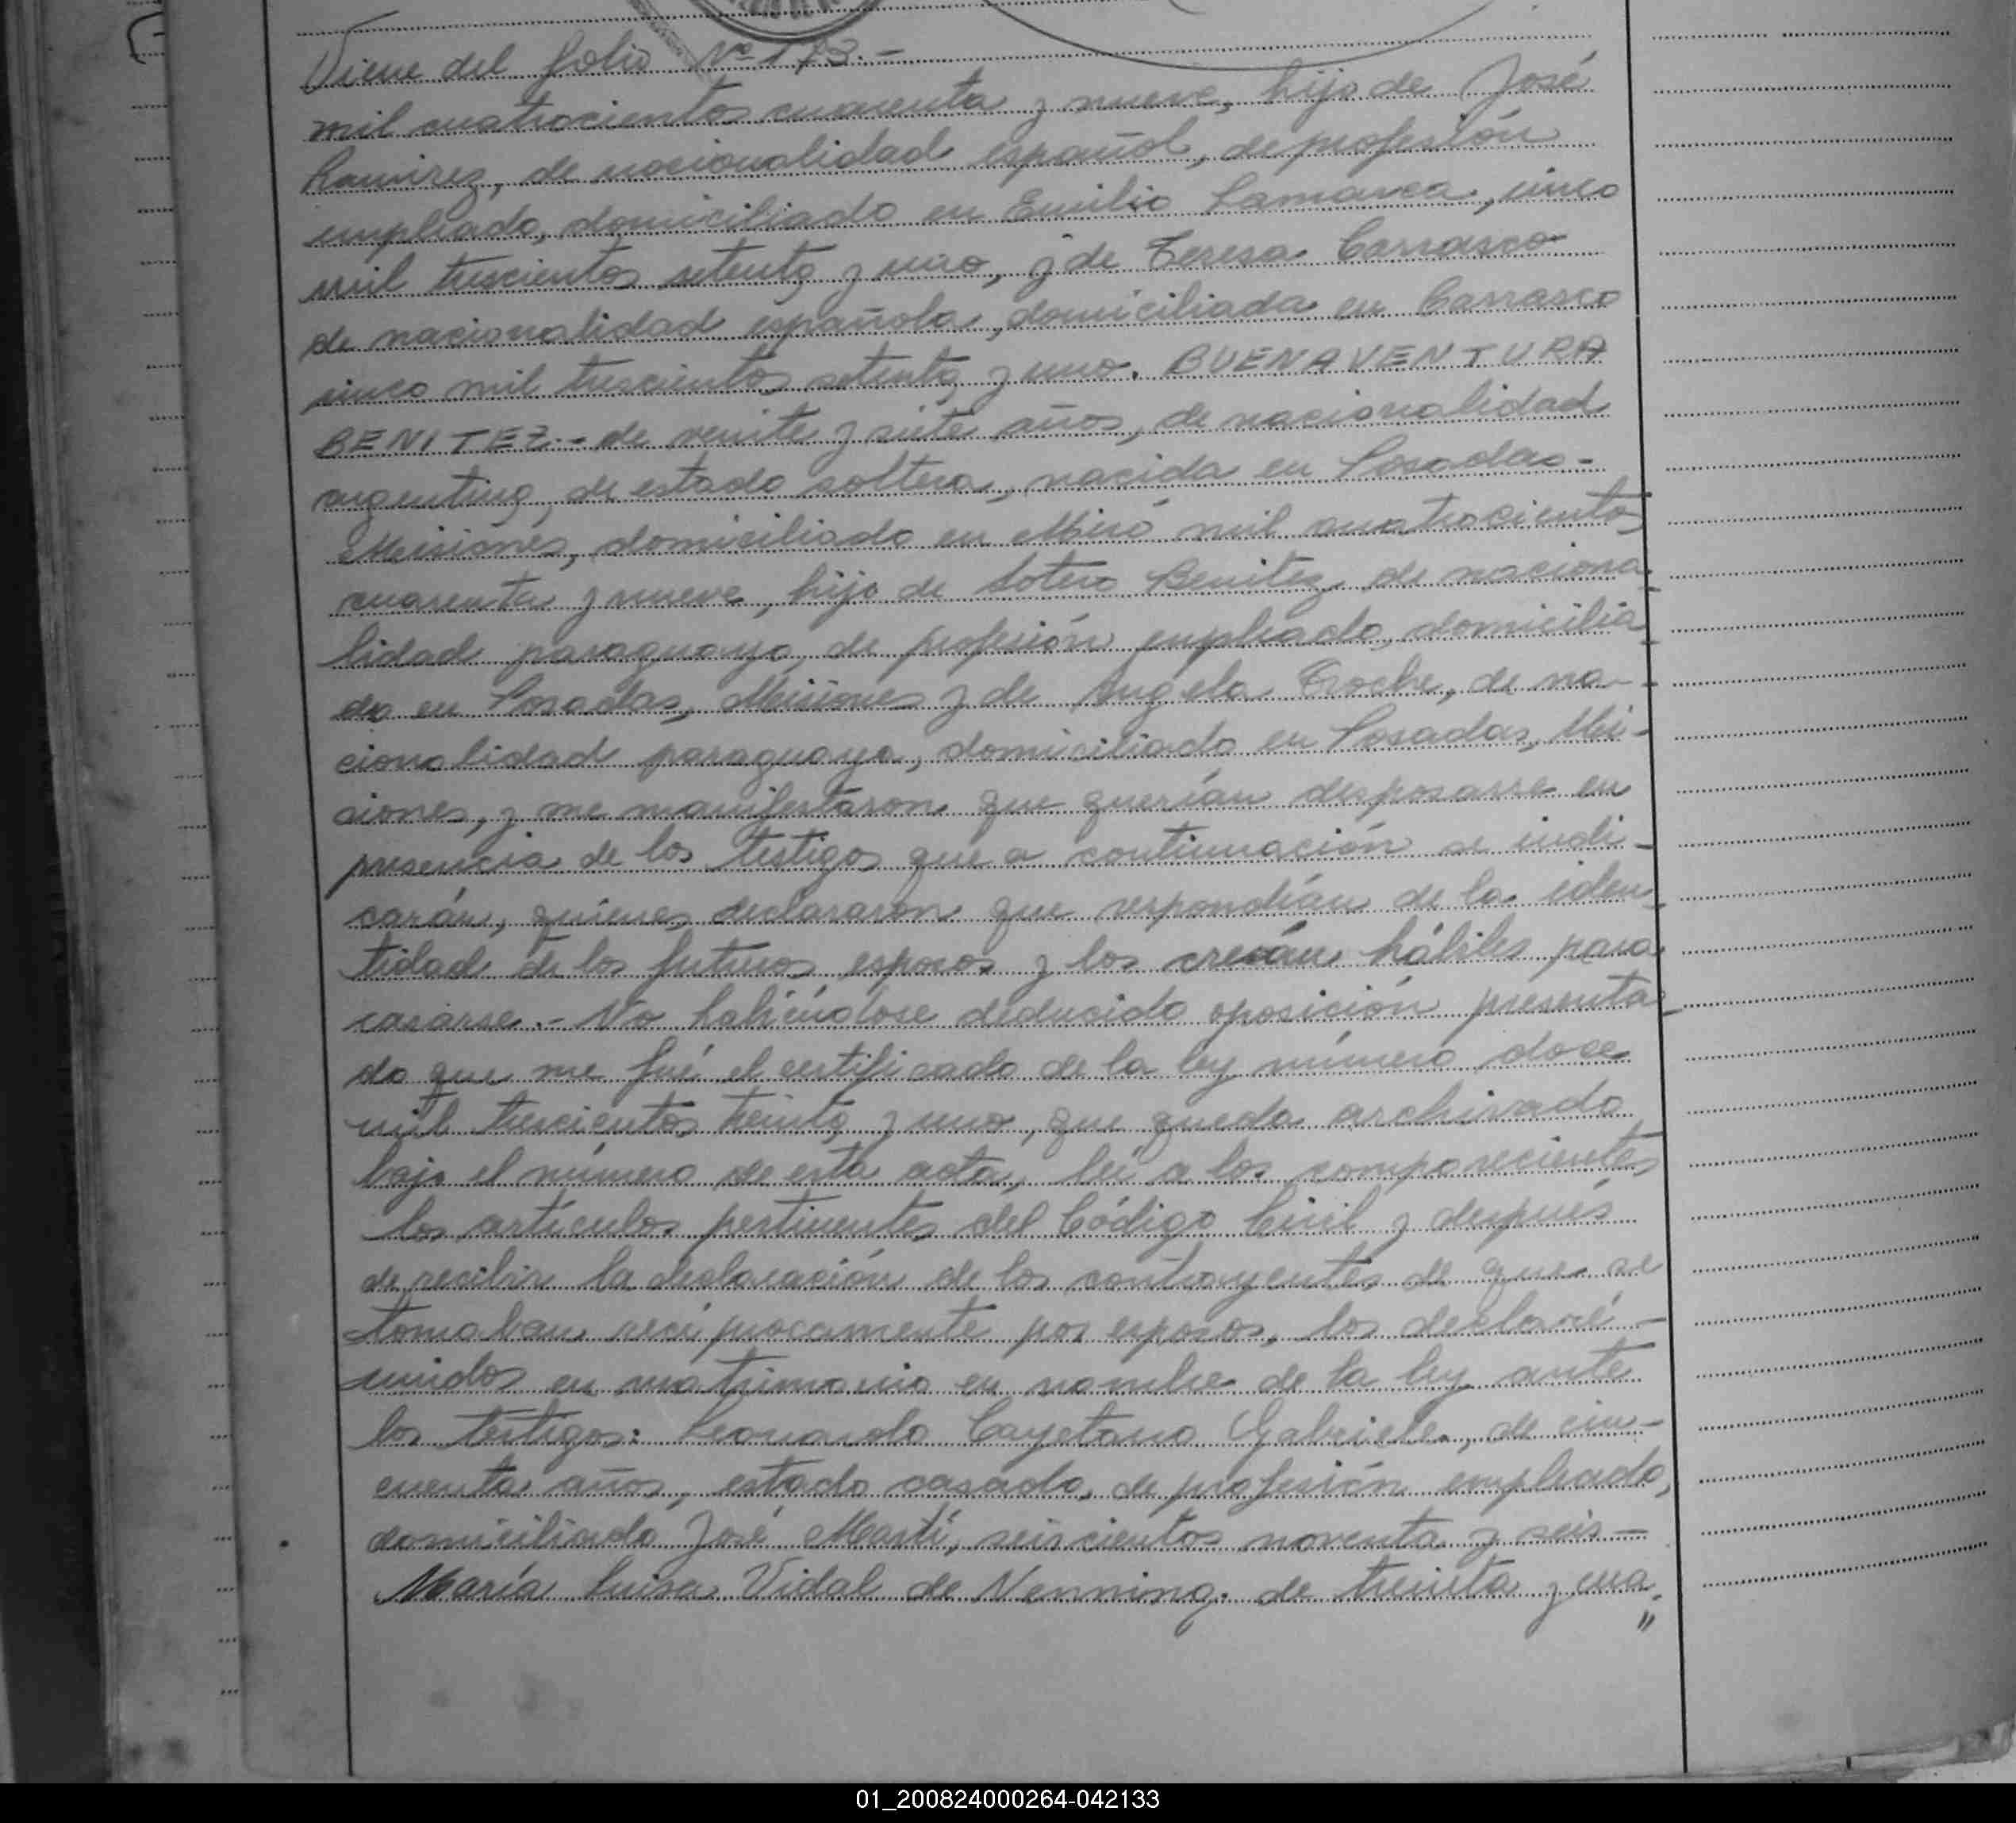 Viene del folio Nº 173.-
mil cuatrocientos cuarenta y nueve, hijo de José
Ramirez, de nacionalidad español, de profesión
empleado, domiciliado en Emilio Lamarca, cinco
mil trescientos setenta y uno, y de Teresa Carrasco
de nacionalidad española, domiciliada en Carrasco
cinco mil trescientos setenta y uno. BUENAVENTURA
BENITEZ.- de veinte y siete años, de nacionalidad
argentina, de estado soltera, nacida en Posadas-
Misiones, domiciliado en Miró mil cuatrocientos
cuarenta y nueve, hija de Sotero Benitez, de naciona-
lidad paraguayo, de profesión empleado, domicilia-
do en Posadas, Misiones y de Angela Troche, de na-
cionalidad paraguaya, domiciliada en Posadas, Mi-
siones, y me manifestaron que querían desposarse en
presencia de los testigos que a continuación se indi-
carán, quienes declararon que respondían de la iden-
tidad de los futuros esposos y los creían hábiles para
casarse.- No habiéndose deducido oposición presenta-
do que me fué el certificado de la ley número doce
mil trescientos treinta y uno, que queda archivado
bajo el número de esta acta, leí a los comparecientes
los artículos pertinentes del Código Civil y después
de recibir la declaración de los contrayentes de que se
tomaban recíprocamente por esposos, los declaré -
unidos en matrimonio en nombre de la ley ante
los testigos: Leonardo Cayetano Gabriele, de cin-
cuenta años, estado casado, de profesión empleado,
domiciliado José Martí, seiscientos noventa y seis-
María Luisa Vidal de Nenning. de treinta y cua-
"
01_200824000264-042133